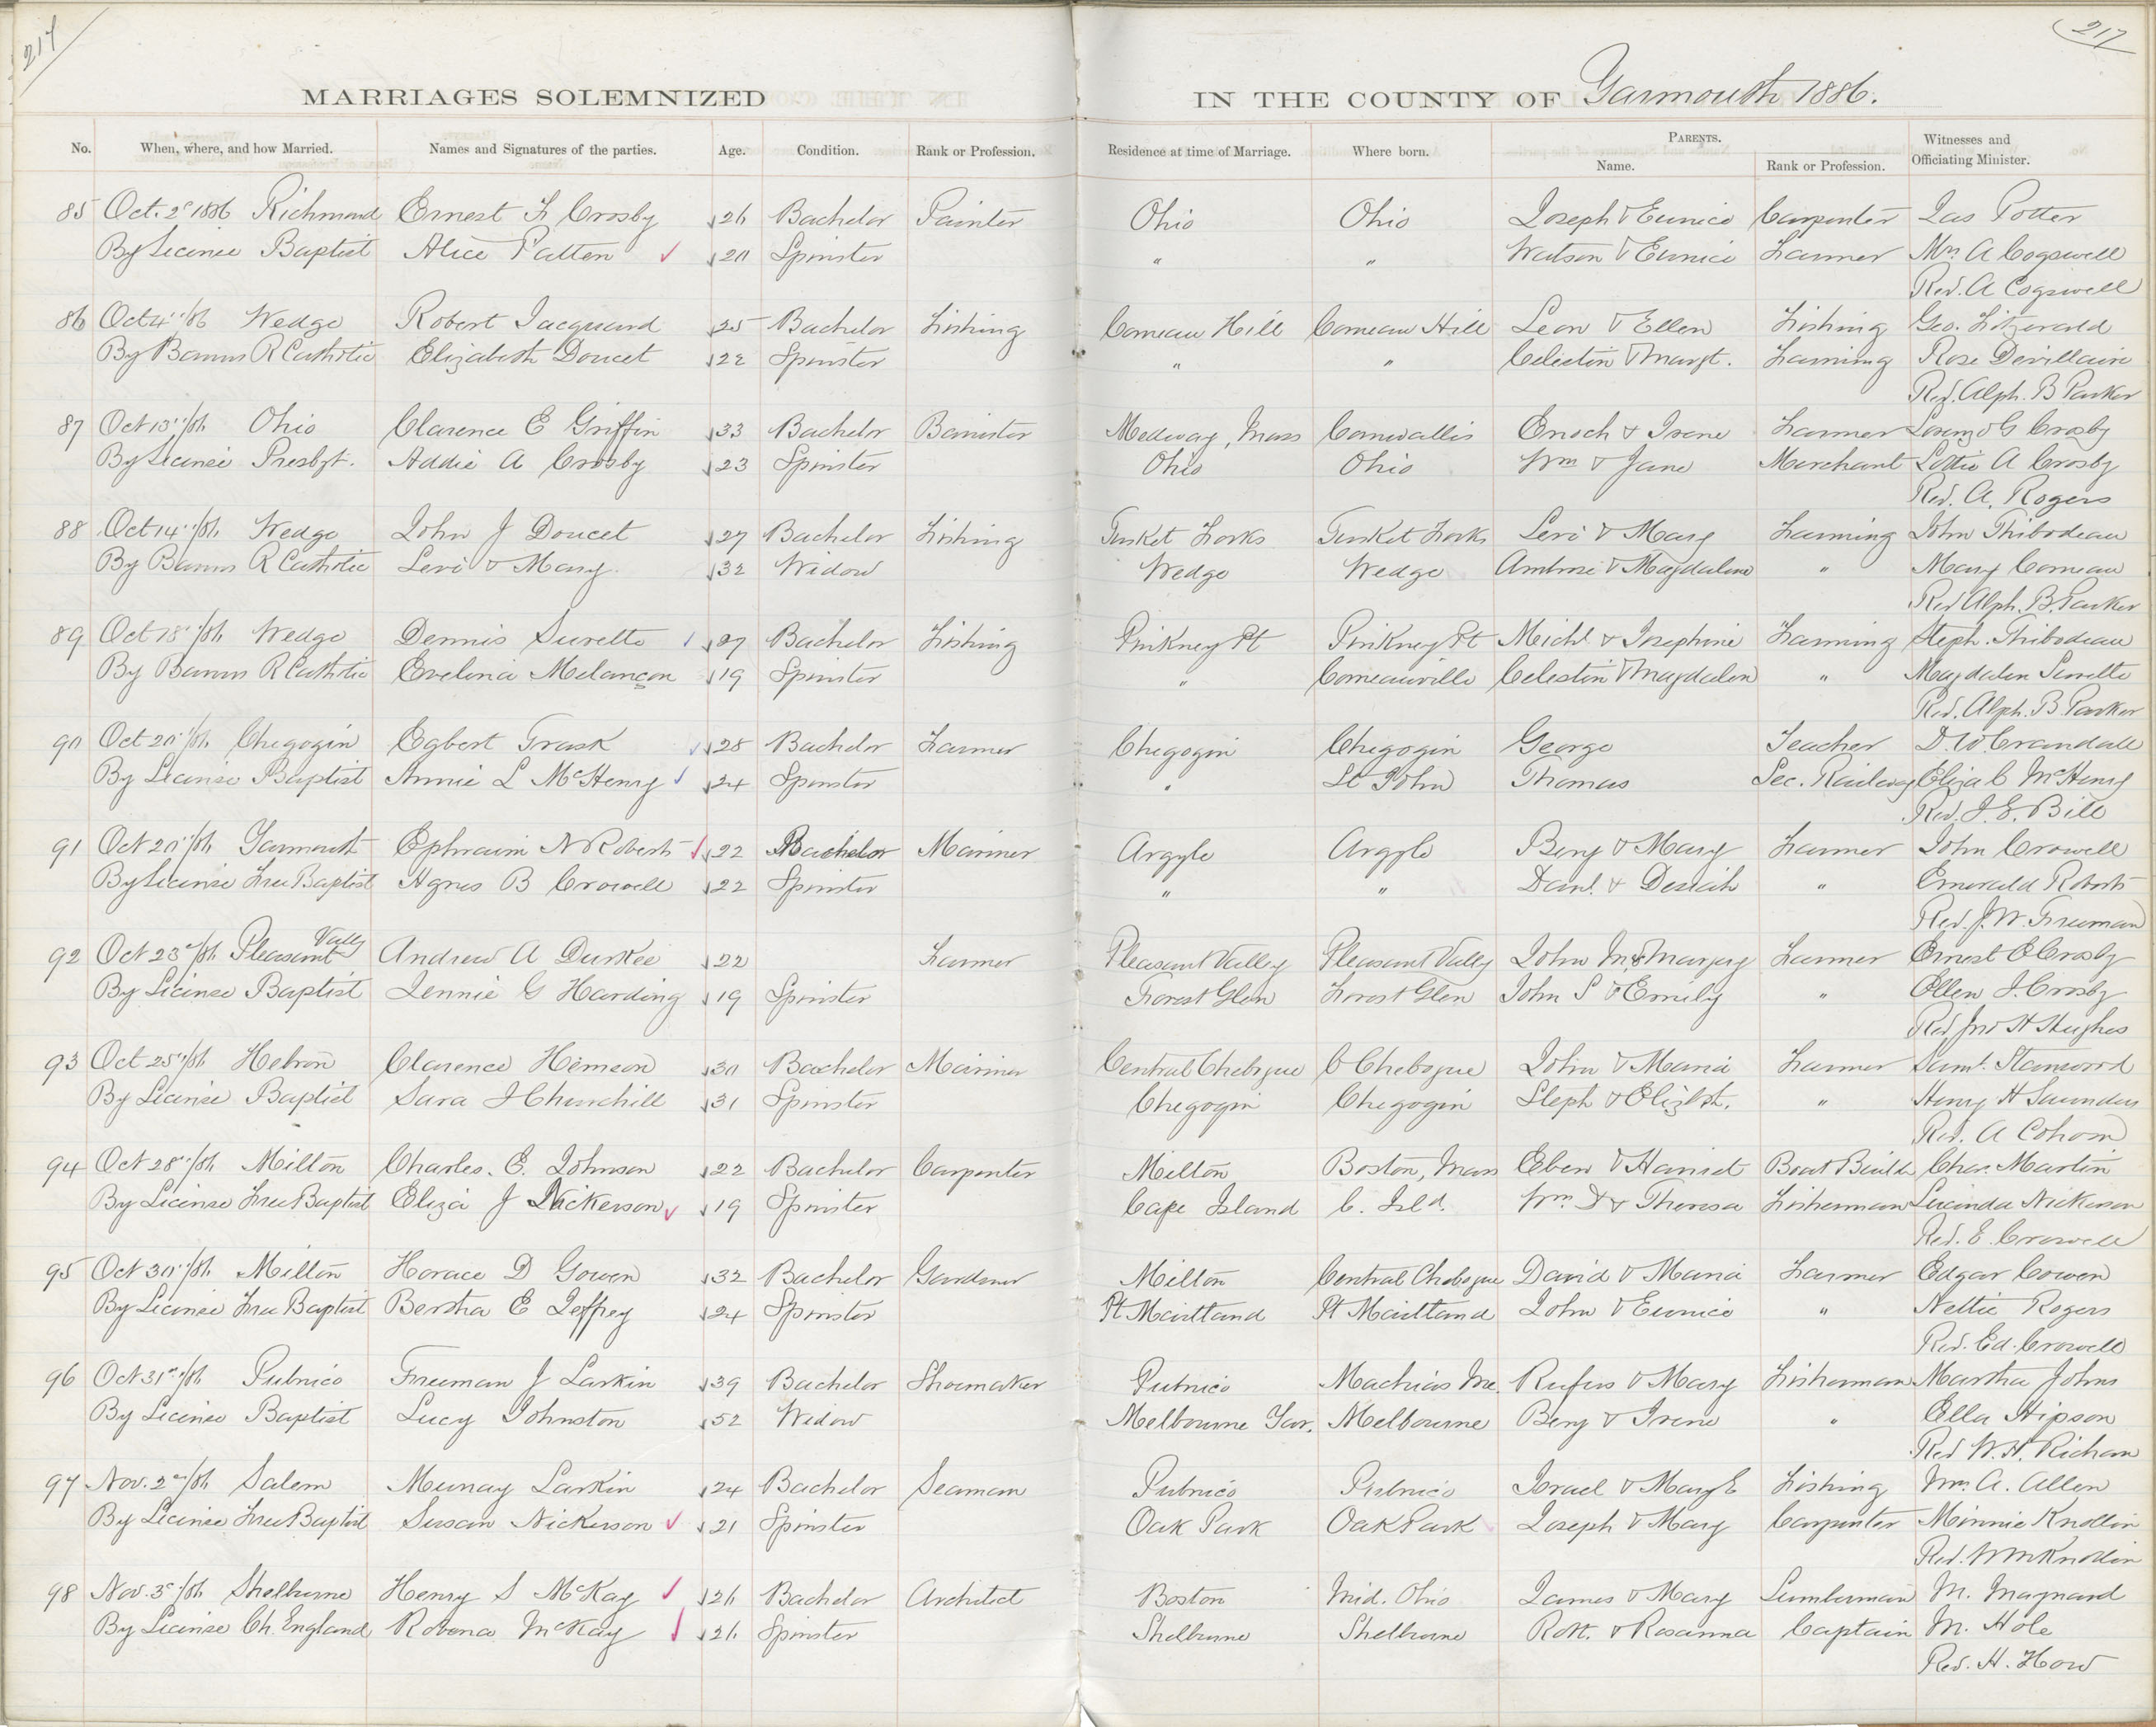 217
217
MARRIAGES SOLEMNIZED IN THE COUNTY OF Yarmouth 1886.
No. When, where, and how Married. Names and Signatures of the parties. Age. Condition. Rank or Profession. Residence at time of Marriage. Where born. PARENTS. Name. Rank or Profession. Witnesses and Officiating Minister.
85 Oct. 2d 1886 Richmond Ernest F Crosby 26 Bachelor Painter Ohio Ohio Joseph & Eunice Carpenter Jas Potter
By License Baptist Alice Patten 20 Spinster " " Watson & Eunice Farmer Mrs A Cogswell
Rev. A Cogswell
86 Oct 4"/86 Wedge Robert Jacquard 25 Bachelor Fishing Comeau Hill Comeau Hill Leon & Ellen Fishing Geo. Fitzerald
By Banns R Catholic Elizabeth Doucet 22 Spinster " " Celestin & Margt. Farming Rose Devillaire
Rev. Alph. B Parker
87 Oct 13"/86 Ohio Clarence E Griffin 33 Bachelor Barrister Medway, Mass Cornwallis Enoch & Irene Farmer Lorenzo G Crosby
By License Presbyt. Addie A Crosby 23 Spinster Ohio Ohio Wm & Jane Merchant Lottie A Crosby
Rev. A. Rogers
88 Oct 14"/86 Wedge John J Doucet 27 Bachelor Fishing Tusket Forks Tusket Forks Levi & Mary Farming John Thibodeau
By Banns R Catholic Levi & Mary 32 Widow Wedge Wedge Ambrose & Magdalene " Mary Comeau
Rev Alph. B. Parker
89 Oct 18"/86 Wedge Dennis Surette 27 Bachelor Fishing Pinkney Pt Pinkney Pt Michl & Josephine Farming Steph. Thibodeau
By Banns R Catholic Evelina Melançon 19 Spinster " Comeauville Celestin & Magdalen " Magdalen Surette
Rev. Alph. B Parker
90 Oct 20"/86 Chegogin Egbert Trask 28 Bachelor Farmer Chegogin Chegogin George Teacher D. W. Crandall
By License Baptist Annie L McHenry 24 Spinster " St John Thomas Sec. Railway Eliza C McHenry
Rev. I. E. Bill
91 Oct 20"/86 Yarmouth Ephraim N Roberts 22 Bachelor Mariner Argyle Argyle Benj & Mary Farmer John Crowell
By License Free Baptist Agnes B Crowell 22 Spinster " " Danl. & Desiah " Emerald Roberts
Rev. J. W. Freeman
92 Oct 23d/86 Pleasant Vally Andrew A Durkee 22 Farmer Pleasant Valley Pleasant Vally John M & Margery Farmer Ernest E Crosby
By License Baptist Jennie G Harding 19 Spinster Forest Glen Forest Glen John S & Emily " Ellen J. Crosby
Rev Jno H Hughes
93 Oct 25"/86 Hebron Clarence Hemeon 30 Bachelor Mariner Central Chebogue C Chebogue John & Maria Farmer Saml. Stanwood
By License Baptist Sara J Churchill 31 Spinster Chegogin Chegogin Steph & Elizbth. " Henry H Saunders
Rev. A Cohoon
94 Oct 28"/86 Milton Charles. E. Johnson 22 Bachelor Carpenter Milton Boston, Mass Eben & Harriet Boat Build Chas. Martin
By License Free Baptist Eliza J Nickerson 19 Spinster Cape Island C. Isld. Wm. D & Theresa Fisherman Lucinda Nickerson
Rev. E. Crowell
95 Oct 30"/86 Milton Horace D Gowen 32 Bachelor Gardner Milton Central Chebogue David & Maria Farmer Edgar Cowen
By License Free Baptist Bertha E Jeffrey 24 Spinster Pt Maitland Pt Maitland John & Eunice " Nettie Rogers
Rev. Ed. Crowell
96 Oct 31st/86 Pubnico Freeman J Larkin 39 Bachelor Shoemaker Pubnico Machias Me. Rufus & Mary Fisherman Martha Johns
By License Baptist Lucy Johnston 52 Widow Melbourne Yar. Melbourne Benj & Irene " Ella Hipson
Rev W. H. Richan
97 Nov. 2nd/86 Salem Murray Larkin 24 Bachelor Seaman Pubnico Pubnico Israel & Mary E Fishing Wm. A. Allen
By License Free Baptist Susan Nickerson 21 Spinster Oak Park Oak Park Joseph & Mary Carpenter Minnie Knollin
Rev. Wm Knollin
98 Nov. 3d/86 Shelburne Henry S McKay 26 Bachelor Architect Boston Mid. Ohio James & Mary Lumberman M. Maynard
By License Ch. England Robena McKay 26 Spinster Shelburne Shelburne Robt. & Rosanna Captain M. Hole
Rev. H. How